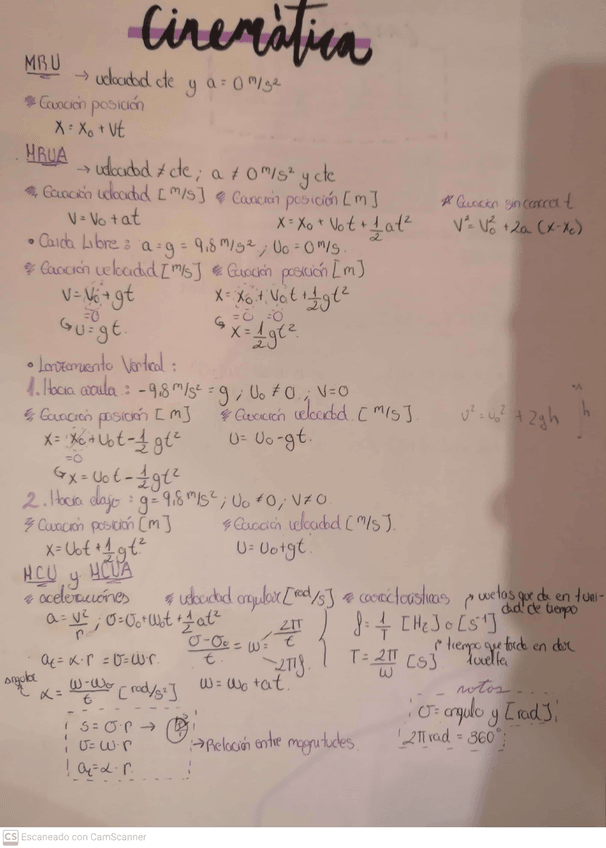 Cinemàtica
MRU → velocidad cte y a = 0 m/s²
* Ecuación posición
X = X₀ + Vt
MRUA → velocidad ≠ cte; a ≠ 0 m/s² y cte
* Ecuación velocidad [m/s] * Ecuación posición [m] * Ecuación sin conocer t
V = V₀ + at X = X₀ + V₀t + 1/2 at² V² = V₀² + 2a (x - x₀)
• Caída Libre: a = g = 9,8 m/s²; V₀ = 0 m/s.
* Ecuación velocidad [m/s] * Ecuación posición [m]
V = V₀ + gt X = X₀ + V₀t + 1/2 gt²
=0 =0 =0
↳ V = gt. ↳ X = 1/2 gt².
• Lanzamiento Vertical:
1. Hacia arriba: -9,8 m/s² = g; V₀ ≠ 0; V = 0
* Ecuación posición [m] * Ecuación velocidad [m/s]. V² = V₀² + 2gh h
X = X₀ + V₀t - 1/2 gt² V = V₀ - gt.
=0
↳ X = V₀t - 1/2 gt²
2. Hacia abajo: g = 9,8 m/s²; V₀ ≠ 0; V ≠ 0.
* Ecuación posición [m] * Ecuación velocidad [m/s].
X = V₀t + 1/2 gt² V = V₀ + gt.
MCU y MCUA
* aceleraciones * velocidad angular [rad/s] * características → vueltas que da en 1 unidad de tiempo
a = v²/r; σ = σ₀ + ω₀t + 1/2 αt² (σ - σ₀)/t = ω = 2π/t f = 1/T [Hz] o [s⁻¹]
2πf. → tiempo que tarda en dar 1 vuelta
aₜ = α · r = v = ω·r. T = 2π/ω [s]
angular α = (ω - ω₀)/t [rad/s²] ω = ω₀ + αt.
notas
s = σ · r → σ = angulo y [rad].
v = ω · r → Relación entre magnitudes. 2π rad = 360°
aₜ = α · r.
CS Escaneado con CamScanner